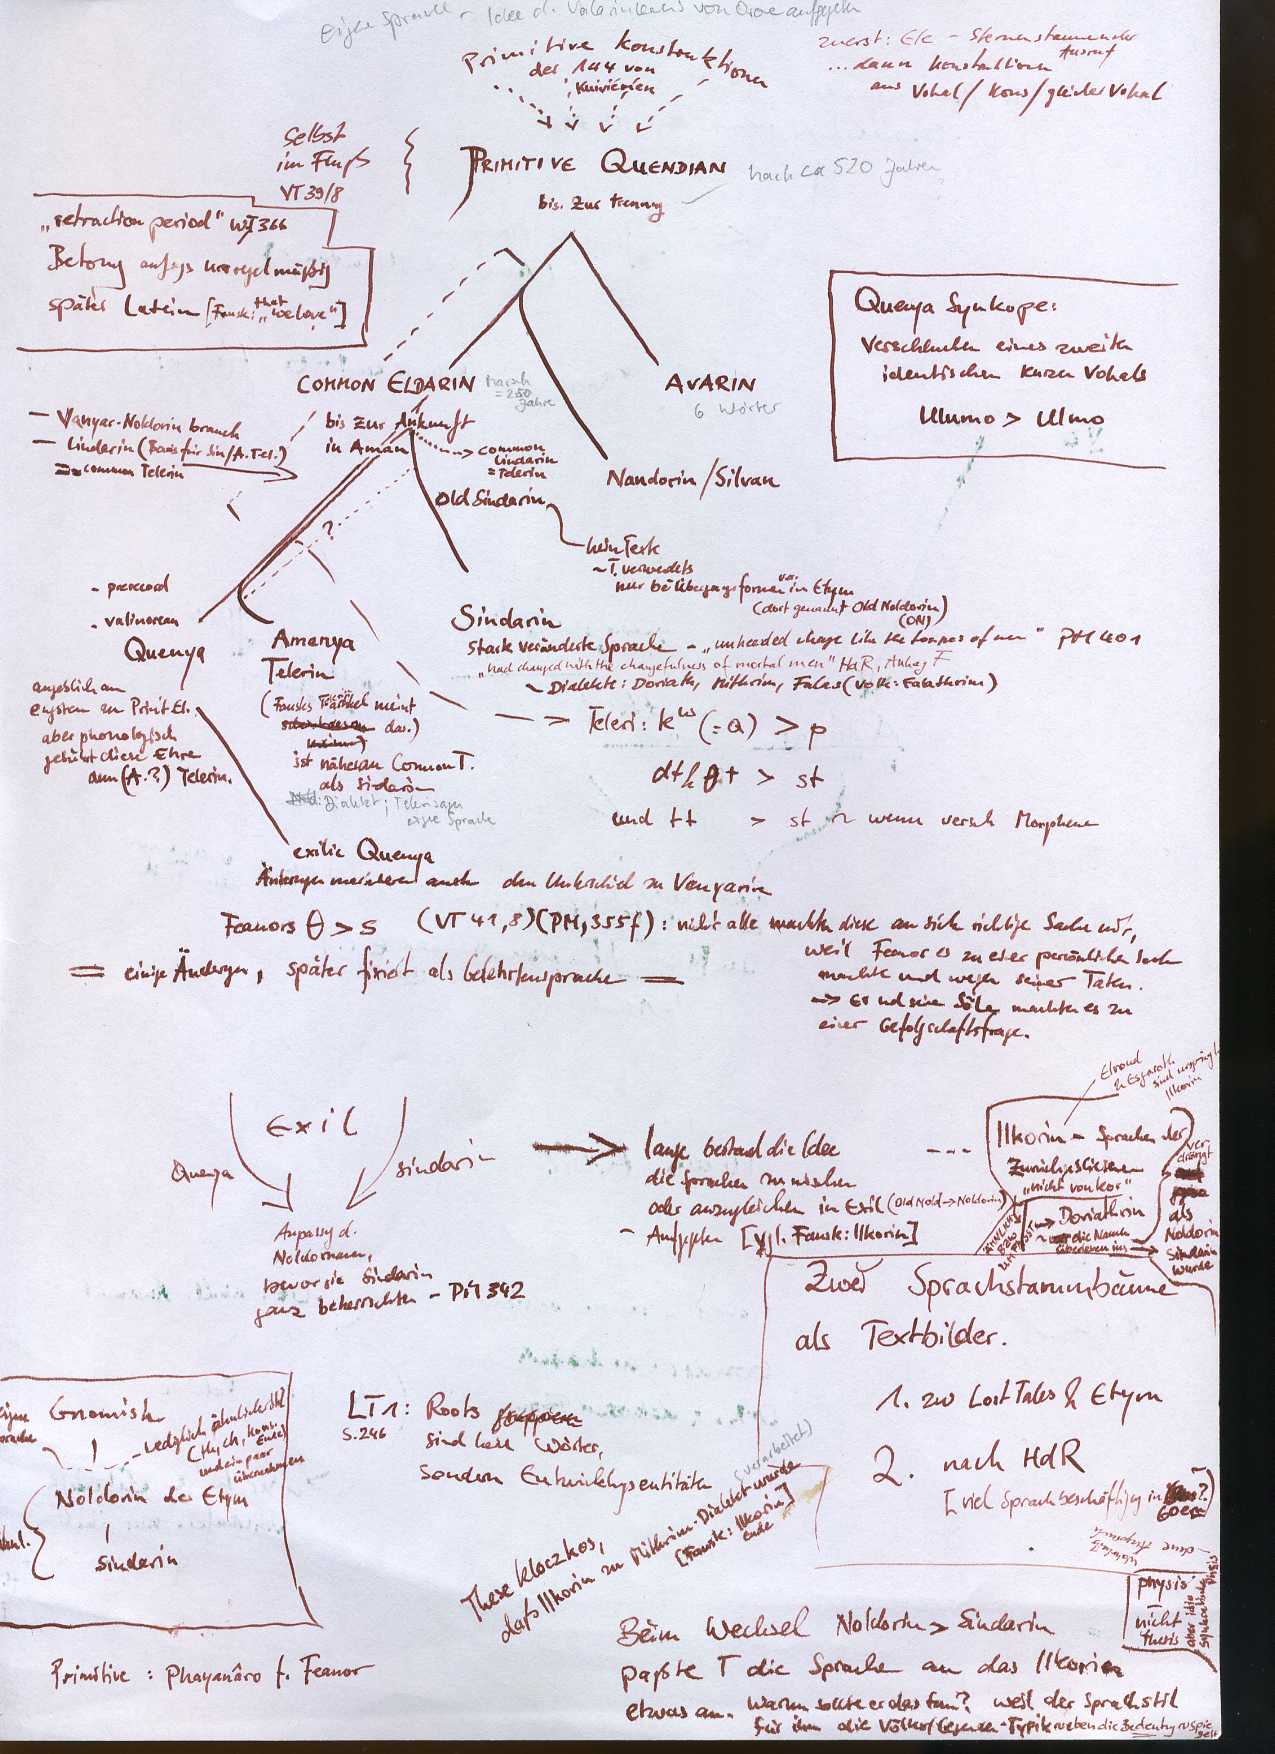 Eigene Sprache - Idee d. Valarinlernens von Orome aufgegeben
Primitive Konstruktionen
der 144 von
Kuiviénen
zuerst: Ele - Sternenstaunender
Ausruf
...dann Konstruktionen
aus Vokal/Kons/gleicher Vokal
Selbst
im Fluß
VT 39/8
PRIMITIVE QUENDIAN
nach ca 520 Jahren
bis zur Trennung
"retraction period" WJ 366
Betong anfags unregelmäßig
später Latein [Fausk: "that we love"]
Quenya Synkope:
Verschlucken eines zweiten
identischen kurzen Vokals
Ulumo > Ulmo
COMMON ELDARIN
Marsch
= 250
Jahre
AVARIN
6 Wörter
- Vanyar-Noldorin branch
- Lindarin (Basis für Sin/A.Tel.)
= common Telerin
bis zur Ankunft
in Aman
common
Lindarin
= Telerin
Nandorin/Silvan
Old Sindarin
?
kein Text
~ T. verwendets
nur bei Übergangsformen in Etym
(dort genannt Old Noldorin)
(ON)
- prerecord
- valinorean
Quenya
angeblich am
engsten zu Primit.El.
aber phonologisch
gebührt diese Ehre
dem (A.?) Telerin.
Amanya
Telerin
(Fausks T-Artikel meint
das.)
ist näher an Common T.
als Sindarin
Dialekt; Telerisagen
eigne Sprache
Sindarin
stark veränderte Sprache - "unheeded change like the tongues of men" PM 401
"had changed with the changefulness of mortal men" HdR, Anhang F
~ Dialekte: Doriath, Mithrim, Falas (Volk: Falathrim)
Teleri: kʷ (=Q) > p
dth θt > st
und tt > st ~ wenn versch Morpheme
exilic Quenya
Änderungen markieren auch den Unterschied zu Vanyarin
Feanors θ > s (VT 41,8)(PM,355f): nicht alle machten diese an sich richtige Sache mit,
weil Feanor es zu einer persönlichen Sache
machte und wegen seiner Taten.
→ Er und seine Söhne machten es zu
einer Gefolgschaftsfrage.
= einige Änderungen, später fixiert als Gelehrtensprache =
Exil
Quenya
Sindarin
Anpassg d.
Noldornamen,
bevor sie Sindarin
ganz beherrschten - PM 342
lange bestand die Idee
die Sprachen zu mischen
oder anzugleichen im Exil (Old Nold → Noldorin)
- Aufgegeben [vgl. Fausk: Ilkorin]
Elrond
& Esgaroth
sind ursprüngl.
Ilkorin
Ilkorin - Sprachen der
Zurückgebliebenen
"nicht von Kor"
→ Doriathrin
die Namen
überleben ins
verdrängt
als
Noldorin
Sindarin
wurde
Zwei Sprachstammbäume
als Textbilder.
1. zu Lost Tales & Etym
2. nach HdR
[viel Sprachbeschäftigung in 60ern?]
Gnomish
lediglich ähnlich
Noldorin der Etym
Sindarin
LT1: Roots
S.246
sind kein Wörter,
sondern Entwicklungsentitäten
These Kloczkos,
daß Ilkorin zu Mithrim-Dialekt wurde
(verarbeitet)
[Fausk: Ilkorin]
Ende
physis
nicht
thesis
Primitive: Phayanâro f. Feanor
Beim Wechsel Noldorin > Sindarin
paßte T die Sprache an das Ilkorin
etwas an. Warum sollte er das tun? weil der Sprachstil
für ihn die Völker/Legenden-Typik neben die Bedeutung